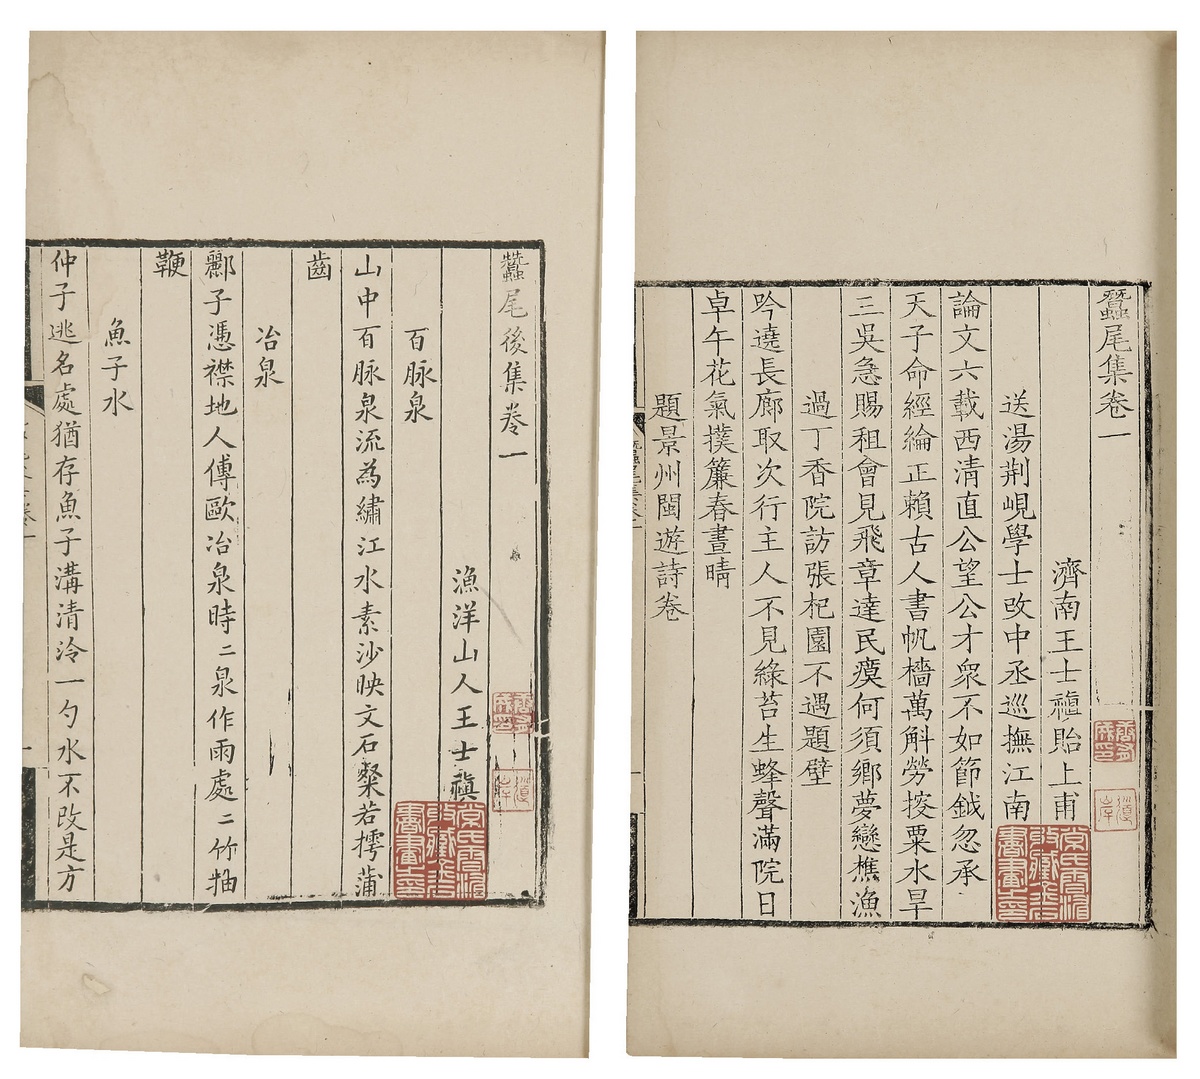 蠶尾集卷一
濟南王士禛貽上甫
送湯荆峴學士改中丞巡撫江南
論文六載西清直公望公才衆不如節鉞忽承
天子命經綸正賴古人書帆檣萬斛勞挍粟水旱
三吳急賜租會見飛章達民瘼何須鄉夢戀樵漁
過丁香院訪張杞園不遇題壁
吟遶長廊取次行主人不見綠苔生蜂聲滿院日
卓午花氣撲簾春晝晴
題景州閩遊詩卷
蠶尾後集卷一
漁洋山人王士禛
百脉泉
山中百脉泉流為繡江水素沙映文石粲若摴蒲
齒
冶泉
酈子憑襟地人傳歐冶泉時二泉作雨處二竹抽
鞭
魚子水
仲子逃名處猶存魚子溝清泠一勺水不改是方